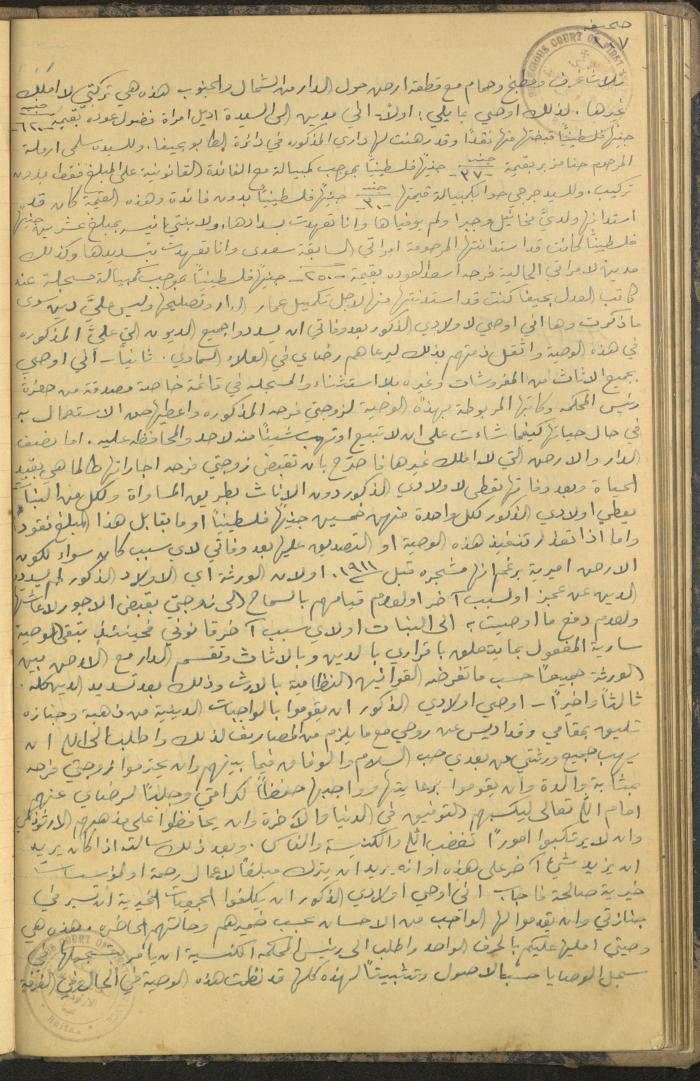 صحيفه
٧
RELIGIOUS COURT OF FIRST
ثلاث غرف ومطبخ وحمام مع قطعة ارض حول الدار من الشمال والجنوب هذه هي تركتي لا املك
غيرها. لذلك اوصي بما يلي: اولاً- اني مدين الى السيدة اديل امراة فضول عوده بقيمة جنيه
جنيهاً فلسطينياً قبضتها منها نقداً وقد رهنت لها داري المذكوره في دائرة الطابو بحيفا. وللسيده سلمى ارملة
المرحوم حنا مزبر بقيمة -٣٧٠- جنيه جنيهاً فلسطينياً بموجب كمبيالة مع الفائدة القانونية على المبلغ فقط بدون
تركيب. وللسيد جرجي حوا بكمبيالة قيمتها -٣٠- جنيه جنيهاً فلسطينياً بدون فائدة وهذه القيمة كان قد
استدانها ولديَّ مخائيل وجبرا ولم يوفياها وانا تعهدت بسدادها. ولابنتي بمبلغ عشرين جنيهاً
فلسطينياً كانت قد استدانتها المرحومة امراتي السابقة سعدى وانا تعهدت بتسديدها وكذلك
مدين لامراتي الحالية فرحه اسعد العوده بقيمة -٢٥٠- جنيهاً فلسطينياً بموجب كمبيالة مسجلة عند
كاتب العدل بحيفا كنت قد استدنتها منها لاجل تكميل عمار الدار وتصليحها وليس عليَّ دين سوى
ما ذكرت وها اني اوصي لاولادي الذكور بعد وفاتي ان يسددوا جميع الديون التي عليَّ المذكوره
في هذه الوصية واثقل ذمتهم بذلك ليرعاهم رضاي في العلاء السماوي. ثانياً- اني اوصي
بجميع الاثاث من المفروشات وغيره بلا استثناء والمسجله في قائمة خاصة مصدقة من حضرة
رئيس المحكمه وكاتبها المربوطة بهذه الوصية لزوجتي فرحه المذكوره واعطيها حق الاستعمال به
في حال حياتها كيفما شاءت على ان لا تبيع او تهب شيئاً منه لاحد والمحافظه عليه. اما نصف
الدار والارض التي لا املك غيرها فاصرّح بان تقبض زوجتي فرحه اجاراتها طالما هي بقيد
الحياة وبعد وفاتها تعطى لاولادي الذكور دون الاناث بطريق المساواة ولكل من البنات
يعطي اولادي الذكور لكل واحدة منهن خمسين جنيهاً فلسطينياً او ما يقابل هذا المبلغ نقوداً
واما اذا تعذر تنفيذ هذه الوصية او التصديق عليها بعد وفاتي لاي سبب كان سواء لكون
الارض اميرية برغم انها مشجره قبل ١٩١١. او لان الورثة اي الاولاد الذكور لم يسددوا
الدين عن عجز او لسبب آخر او لعدم قيامهم بالسماح الى زوجتي بقبض الاجور لاعاشتها
ولعدم دفع ما اوصيت به الى البنات او لاي سبب آخر قانوني فحينئذ تبقى الوصية
سارية المفعول بما يتعلق باقراري بالدين وبالاثاث وتقسم الدار مع الارض بين
الورثة جميعاً حسب ما تفرضه القوانين النظامية بالارث وذلك بعد تسديد الدين كله.
ثالثاً واخيراً- اوصي اولادي الذكور ان يقوموا بالواجبات الدينية من ذهبة وجنازه
تليق بمقامي وقداديس عن روحي مع ما يلزم من المصاريف لذلك واطلب الى الله ان
يهب جميع ورثتي من بعدي حب السلام والوفاق فيما بينهم وان يحترموا زوجتي فرحه
بمثابة والدة وان يقوموا برعايتها وواجبها حفظاً لكرامتي وجلباً لرضاي عنهم
امام الله تعالى ليكسبهم التوفيق في الدنيا والآخرة وان يحافظوا على مذهبهم الارثوذكسي
وان لا يرتكبوا اموراً تغضب الله والكنيسة والناس. وبعد ذلك سالته اذا كان يريد
ان يزيد شيئ آخر على هذه او انه يريد ان يترك مبلغاً لاعمال رحمة او لمؤسسات
خيرية صالحة فاجاب انني اوصي اولادي الذكور ان يكلفوا الجمعيات الخيرية لتسير في
جنازتي وان يقدموا لها الواجب من الاحسان بحسب ضميرهم وحالتهم الحاضره. وهذه هي
وصيتي امليها عليكم بالحرف الواحد واطلب الى رئيس المحكمه الكنسية ان يامر بتسجيلها في
سجل الوصايا حسب الاصول وتثبيتاً لهذه كلها قد نظمت هذه الوصية في الحال وفي الغرفة